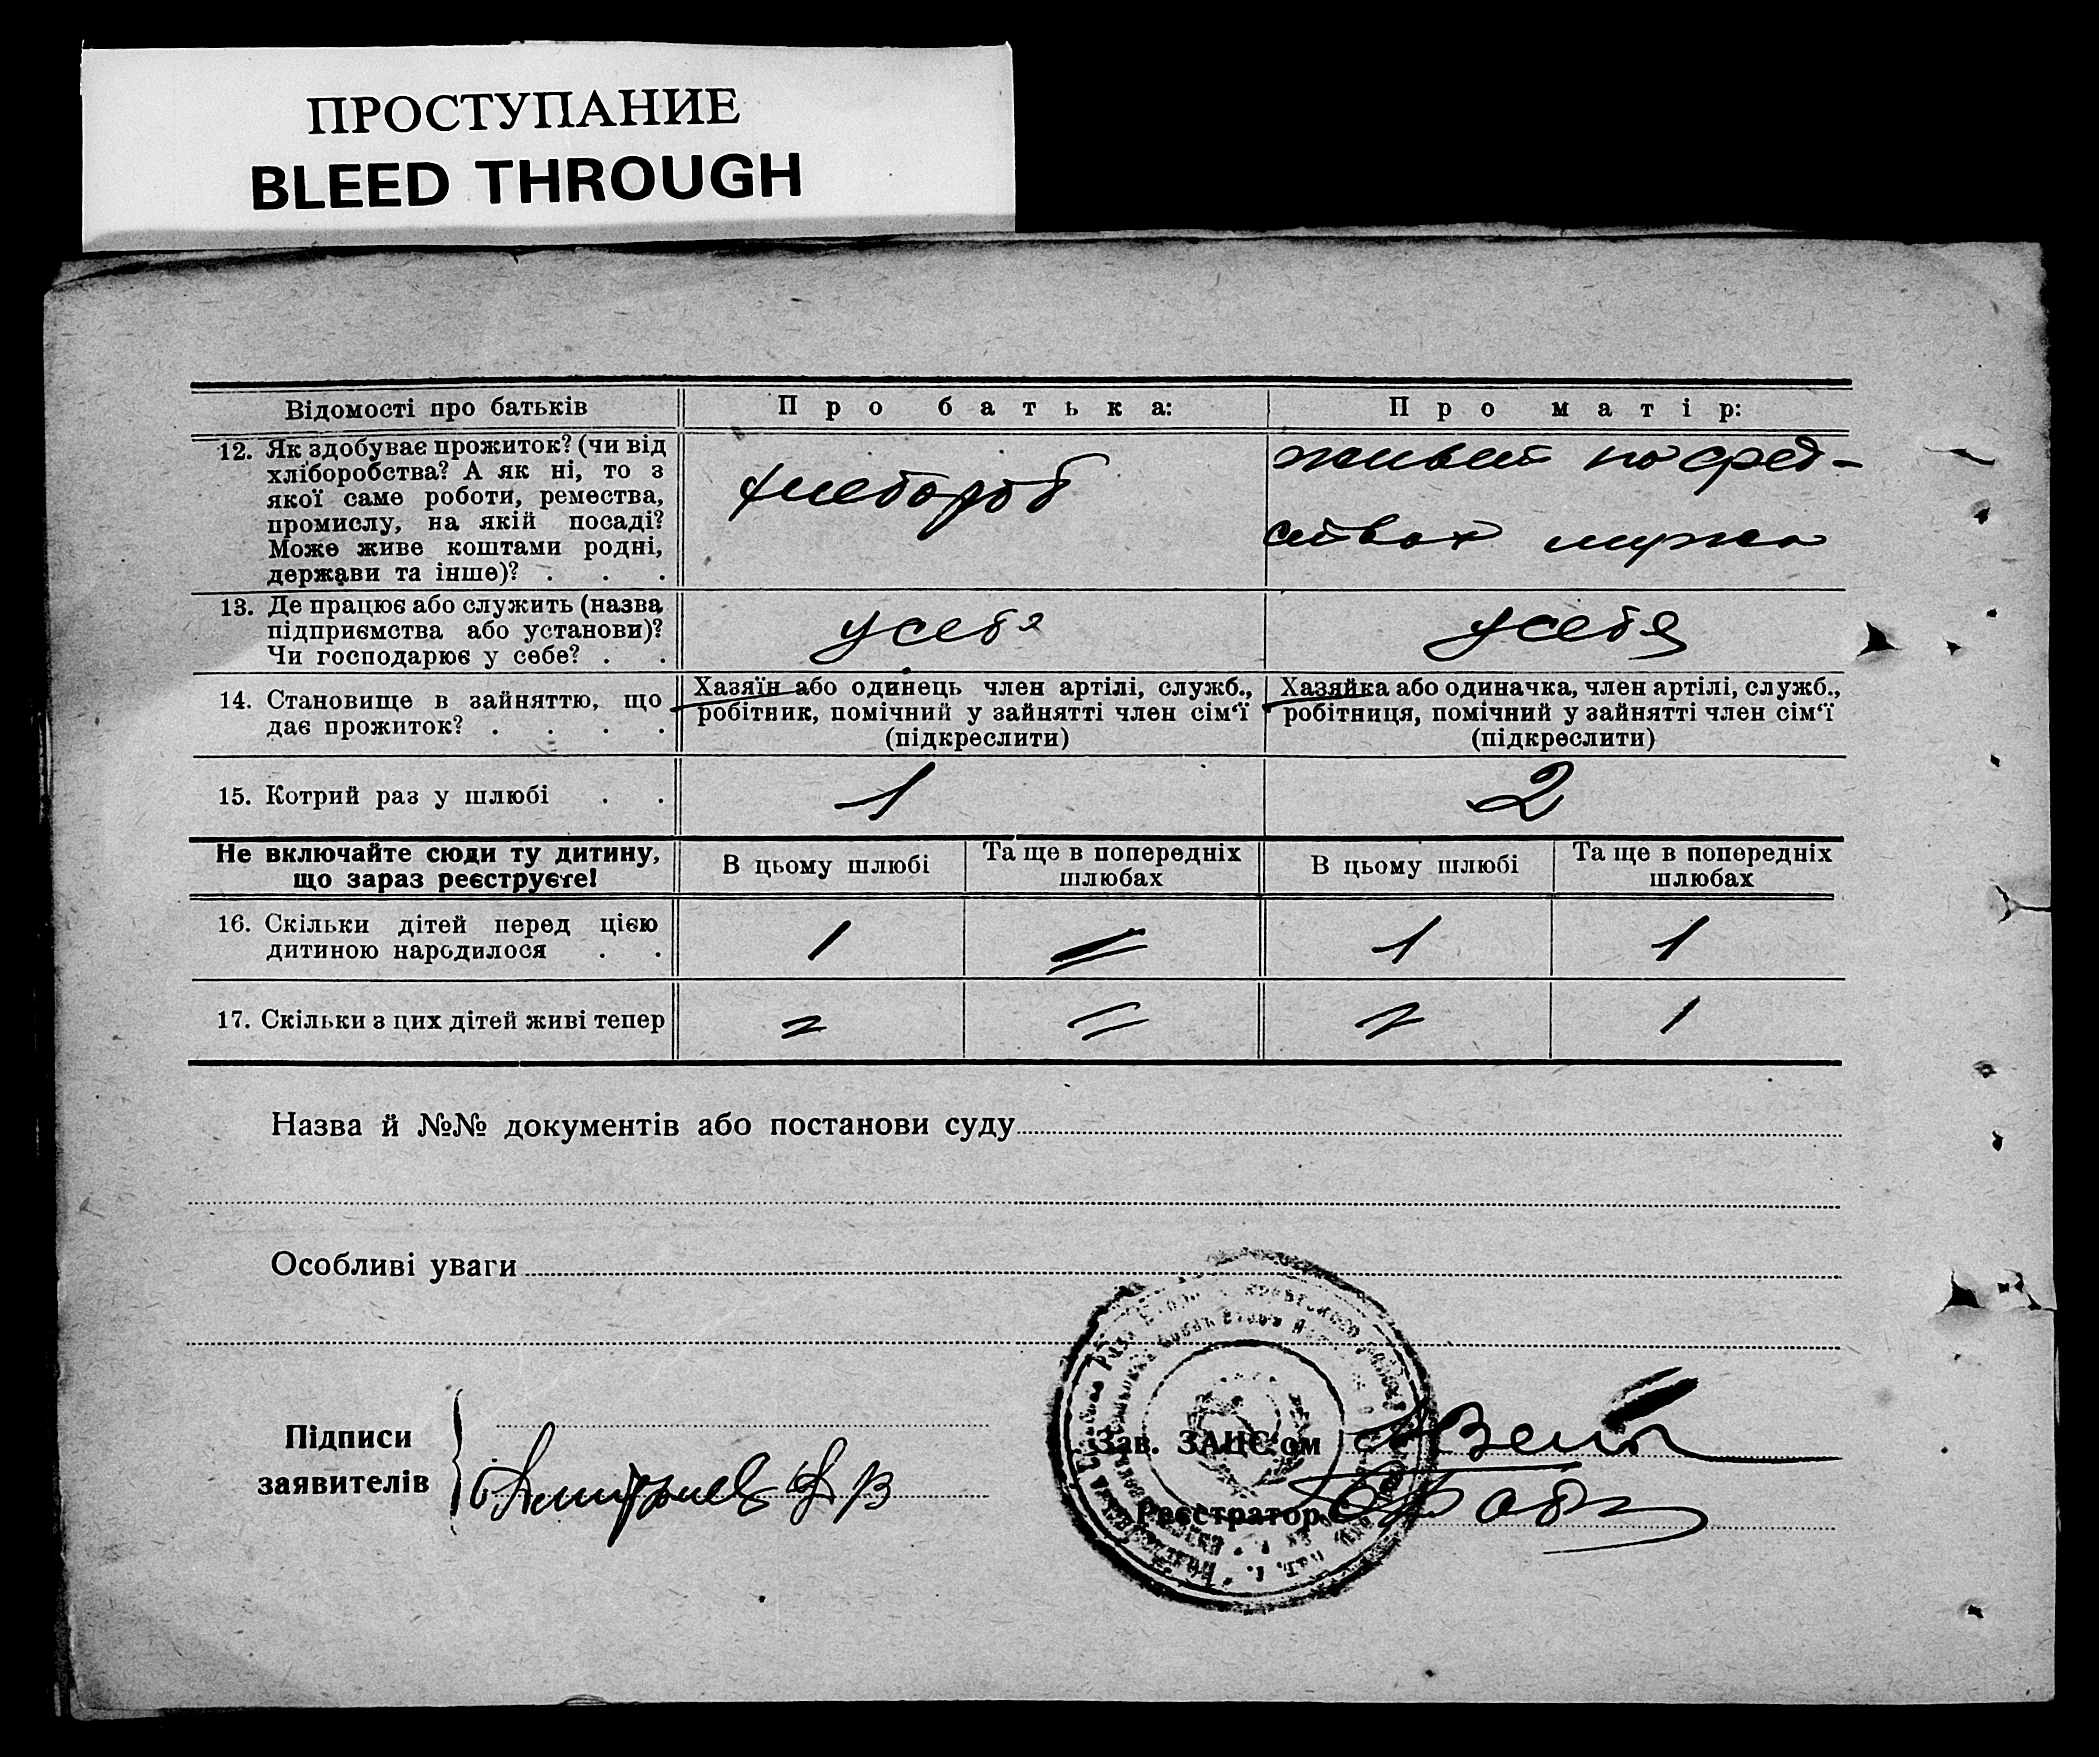 ПРОСТУПАНИЕ
BLEED THROUGH
Відомості про батьків
Про батька:
Про матір:
12. Як здобуває прожиток? (чи від
хліборобства? А як ні, то з
якої саме роботи, ремества,
промислу, на якій посаді?
Може живе коштами родні,
держави та інше)? . . .
хлебороб
живет на сред-
ствах мужа
13. Де працює або служить (назва
підприємства або установи)?
Чи господарює у себе? . .
у себя
у себя
14. Становище в зайняттю, що
дає прожиток? . . . .
Хазяїн або одинець член артілі, служб.,
робітник, помічний у зайнятті член сім‘ї
(підкреслити)
Хазяйка або одиначка, член артілі, служб.,
робітниця, помічний у зайнятті член сім‘ї
(підкреслити)
15. Котрий раз у шлюбі . .
1
2
Не включайте сюди ту дитину,
що зараз реєструєте!
В цьому шлюбі
Та ще в попередніх
шлюбах
В цьому шлюбі
Та ще в попередніх
шлюбах
16. Скільки дітей перед цією
дитиною народилося . .
1
=
1
1
17. Скільки з цих дітей живі тепер
=
=
=
1
Назва й №№ документів або постанови суду
Особливі уваги
Підписи
заявителів
Зав. ЗАЦС‘ом
Реєстратор